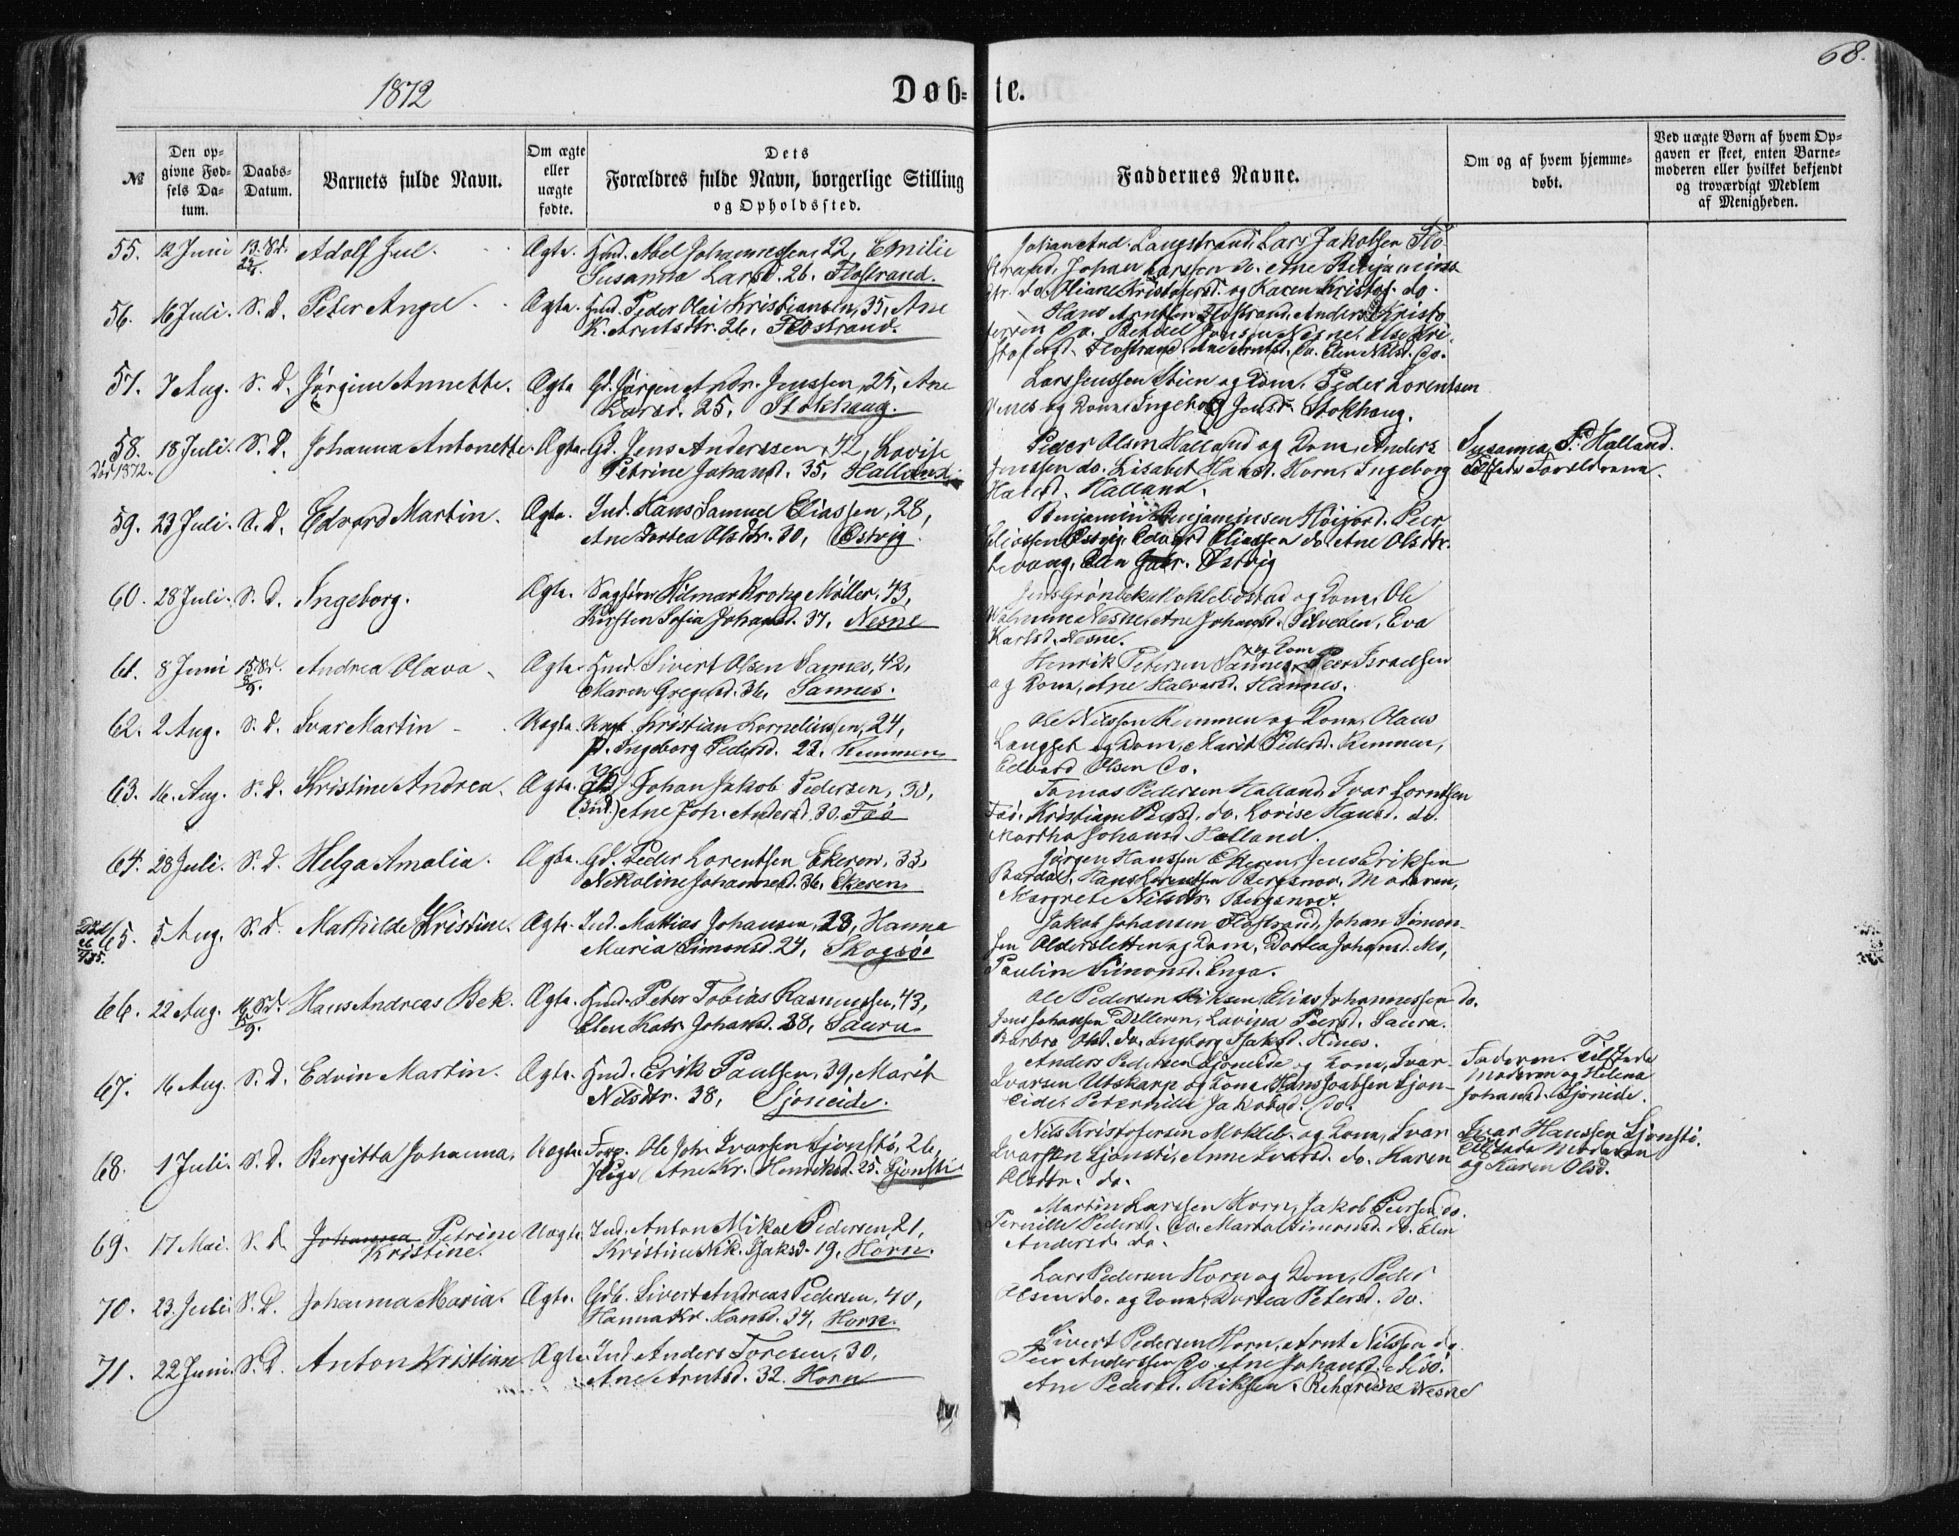 1872
Døb=te.
68.
№
Den op=
givne Fød=
sels Da=
tum.
Daabs=
Datum.
Barnets fulde Navn.
Om ægte
eller
uægte
fødte.
Dets
Forældres fulde Navn, borgerlige Stilling
og Opholdssted.
Faddernes Navne.
Om og af hvem hjemme=
døbt.
Ved uægte Børn af hvem Op=
gaven er skeet, enten Barne=
moderen eller hvilket bekjendt
og troværdigt Medlem
af Menigheden.
55. 12 Juni Adolf Jul. Ægte. Hmd. Abel Johannessen, 22, Emilie
Susanna Larsd. 26. Flostrand.
Johan And. Langstrand, Lars Jakobsen Flo-
strand, Johan Larssen do. Ane Benjamins
dtr. do. Oliane Kristofersd. og Karen Kristof. do.
56. 16 Juli. S. D. Peter Angel Ægte. Hmd. Peder Olai Kristiansen, 35, Ane
K. Arntsdtr. 26, Flostrand.
Hans Arntsen Flostrand, Anders Kristo
fersen do. Jonsen Nesne,
Flostrand, Ane Arntsd. do. Elen Nilsd. do.
57. 7 Aug. S. D. Jørgine Annette. Ægte Gd. Jørgen Andr. Jenssen, 25, Ane
Larsd. 25, Stokhaug.
Lars Jenssen Stien og Kone, Peder Lorentsen
og Kone, Ingeborg Jensd. Stokhaug.
58. 18 Juli. S. D. Johanna Antonette Ægte. Gd. Jens Anderssen, 42, Lovise
Død 1872. Petrine Johansd. 35, Halland.
Peder Olsen Halland og Kone, Anders
Jenssen do. Lisabet Hansd. Horn, Ingeborg
Hansd. Halland.
Susanna P. Halland.
Tilstede Forældrene.
59. 23 Juli. S. D. Edvard Martin. Ægte. Ind. Hans Samuel Eliassen, 28,
Ane Dortea Olsdtr. 30, Østvig.
Benjamin Benjaminsen Peer
Eliassen Østvig, Edvard Eliassen do. Ane Olsdtr.
Levang, Elen Østvig
60. 28 Juli. S. D. Ingeborg. Ægte. Hilmar Krohg Møller, 43,
Kirsten Sofia Johansd. 37, Nesne
Jens Grønbek Moklebostad og Kone, Ole
Nesne, Ane Johansd. Eva
Karlsd. Nesne.
61. 8 Juni Andrea Olava Ægte Hmd. Sivert Olsen Sannes, 42,
Maren Gregersd. 36, Sannes.
Henrik Petersen Sannes og Kone, Peer Israelsen
og Kone, Ane Halvorsd. Hannes.
62. 2 Aug. S. D. Ivar Martin Uægte. Kristian Korneliussen, 24,
p. Ingeborg Pedersd. 22. Remmen
Ole Nilssen Remmen og Kone, Olaus
Langset og Kone, Marit Pedersd. Remmen,
Edvard Olsen do.
63. 16 Aug. S. D. Kristine Andrea. Ægte. Johan Jakob Pedersen, 30,
(Ind.) Ane Joh. Andersd. 30.
Tomas Pedersen Halland, Ivar Lorntsen
Kristiane Peersd. do. Lovise Hansd. do.
Martha Johansd. Halland.
64. 28 Juli. S. D. Helga Amalia. Ægte. Gd. Peder Lorentsen Ekeren, 33,
Nikoline Johannesd. 36, Ekeren
Jørgen Hanssen Ekeren, Jens Eriksen
Bardal, Hans Lorentsen Bergsnov, Moderen,
Margrete Nilsdtr. Bergsnov.
65. 5 Aug. S. D. Mathilde Kristine. Ægte. Ind. Mattias Johansen, 28, Hanna
Død Maria Simonsd. 24, Skogsø.
Jakob Johansen Flostrand, Johan Simon-
sen Oldersletten og Kone, Dortea Johansd. Mo,
Pauline Simonsd. Enga.
66. 22 Aug. Hans Andreas Bek. Ægte. Hmd. Peter Tobias Rasmussen, 43,
Elen Katr. Johansd. 38, Saura.
Ole Pedersen Eliksen, Elias Johannessen do.
Jens Johansen Dilleren, Lavina Peersd. Saura.
Barbro Olsd. do. Ingborg Isaksd. Hines.
67. 16 Aug. S. D. Edvin Martin. Ægte. Hmd. Erik Paulsen, 39, Marit
Nilsdtr. 38, Sjoneide.
Anders Pedersen Sjoneide og Kone, Ivar
Ivarsen Utskarp og Kone, Hans Joabsen Sjon-
eide, Petternille Jakobsd. do.
Faderen. Tilstede
Moderen og Helena
Johansd. Sjoneide.
68. 1 Juli. S. D. Bergitta Johanna. Uægte Forp. Ole Joh. Ivarsen Sjonsti, 26,
Pige Ane Kr. Henriksd. 25. Sjonsti
Nils Kristofersen Mokleb. og Kone, Ivar
Ivarsen Sjonsti, Anne Ivarsd. do. Karen
Olsdtr. do.
Ivar Hanssen Sjonsti.
Tilstede Moderen
og Karen Olsd.
69. 17 Mai. S. D. Johanna Petrine Uægte Ind. Anton Mikal Pedersen, 21,
Kristine. Kristine Nik. Isaksd. 19, Horn.
Martin Larssen Horn, Jakob Peersen do.
Pernille Pedersd. do. Marta Simonsd. do. Elen
Andersd. do.
70. 23 Juli. S. D. Johanna Maria. Ægte. Gdb. Sivert Andreas Pedersen, 40,
Hanna Kr. Hansd. 34, Horn.
Lars Pedersen Horn og Kone, Peder
Olsen do. og Kone, Dortea Petersd. do.
71. 22 Juni. S. D. Anton Kristian Ægte Ind. Anders Toresen, 30,
Ane Arntsd. 32. Horn
Sivert Pedersen Horn, Arnt Nilssen do.
Peer Anderssen do. Ane Johansd. do.
Ane Pedersd. Nesne